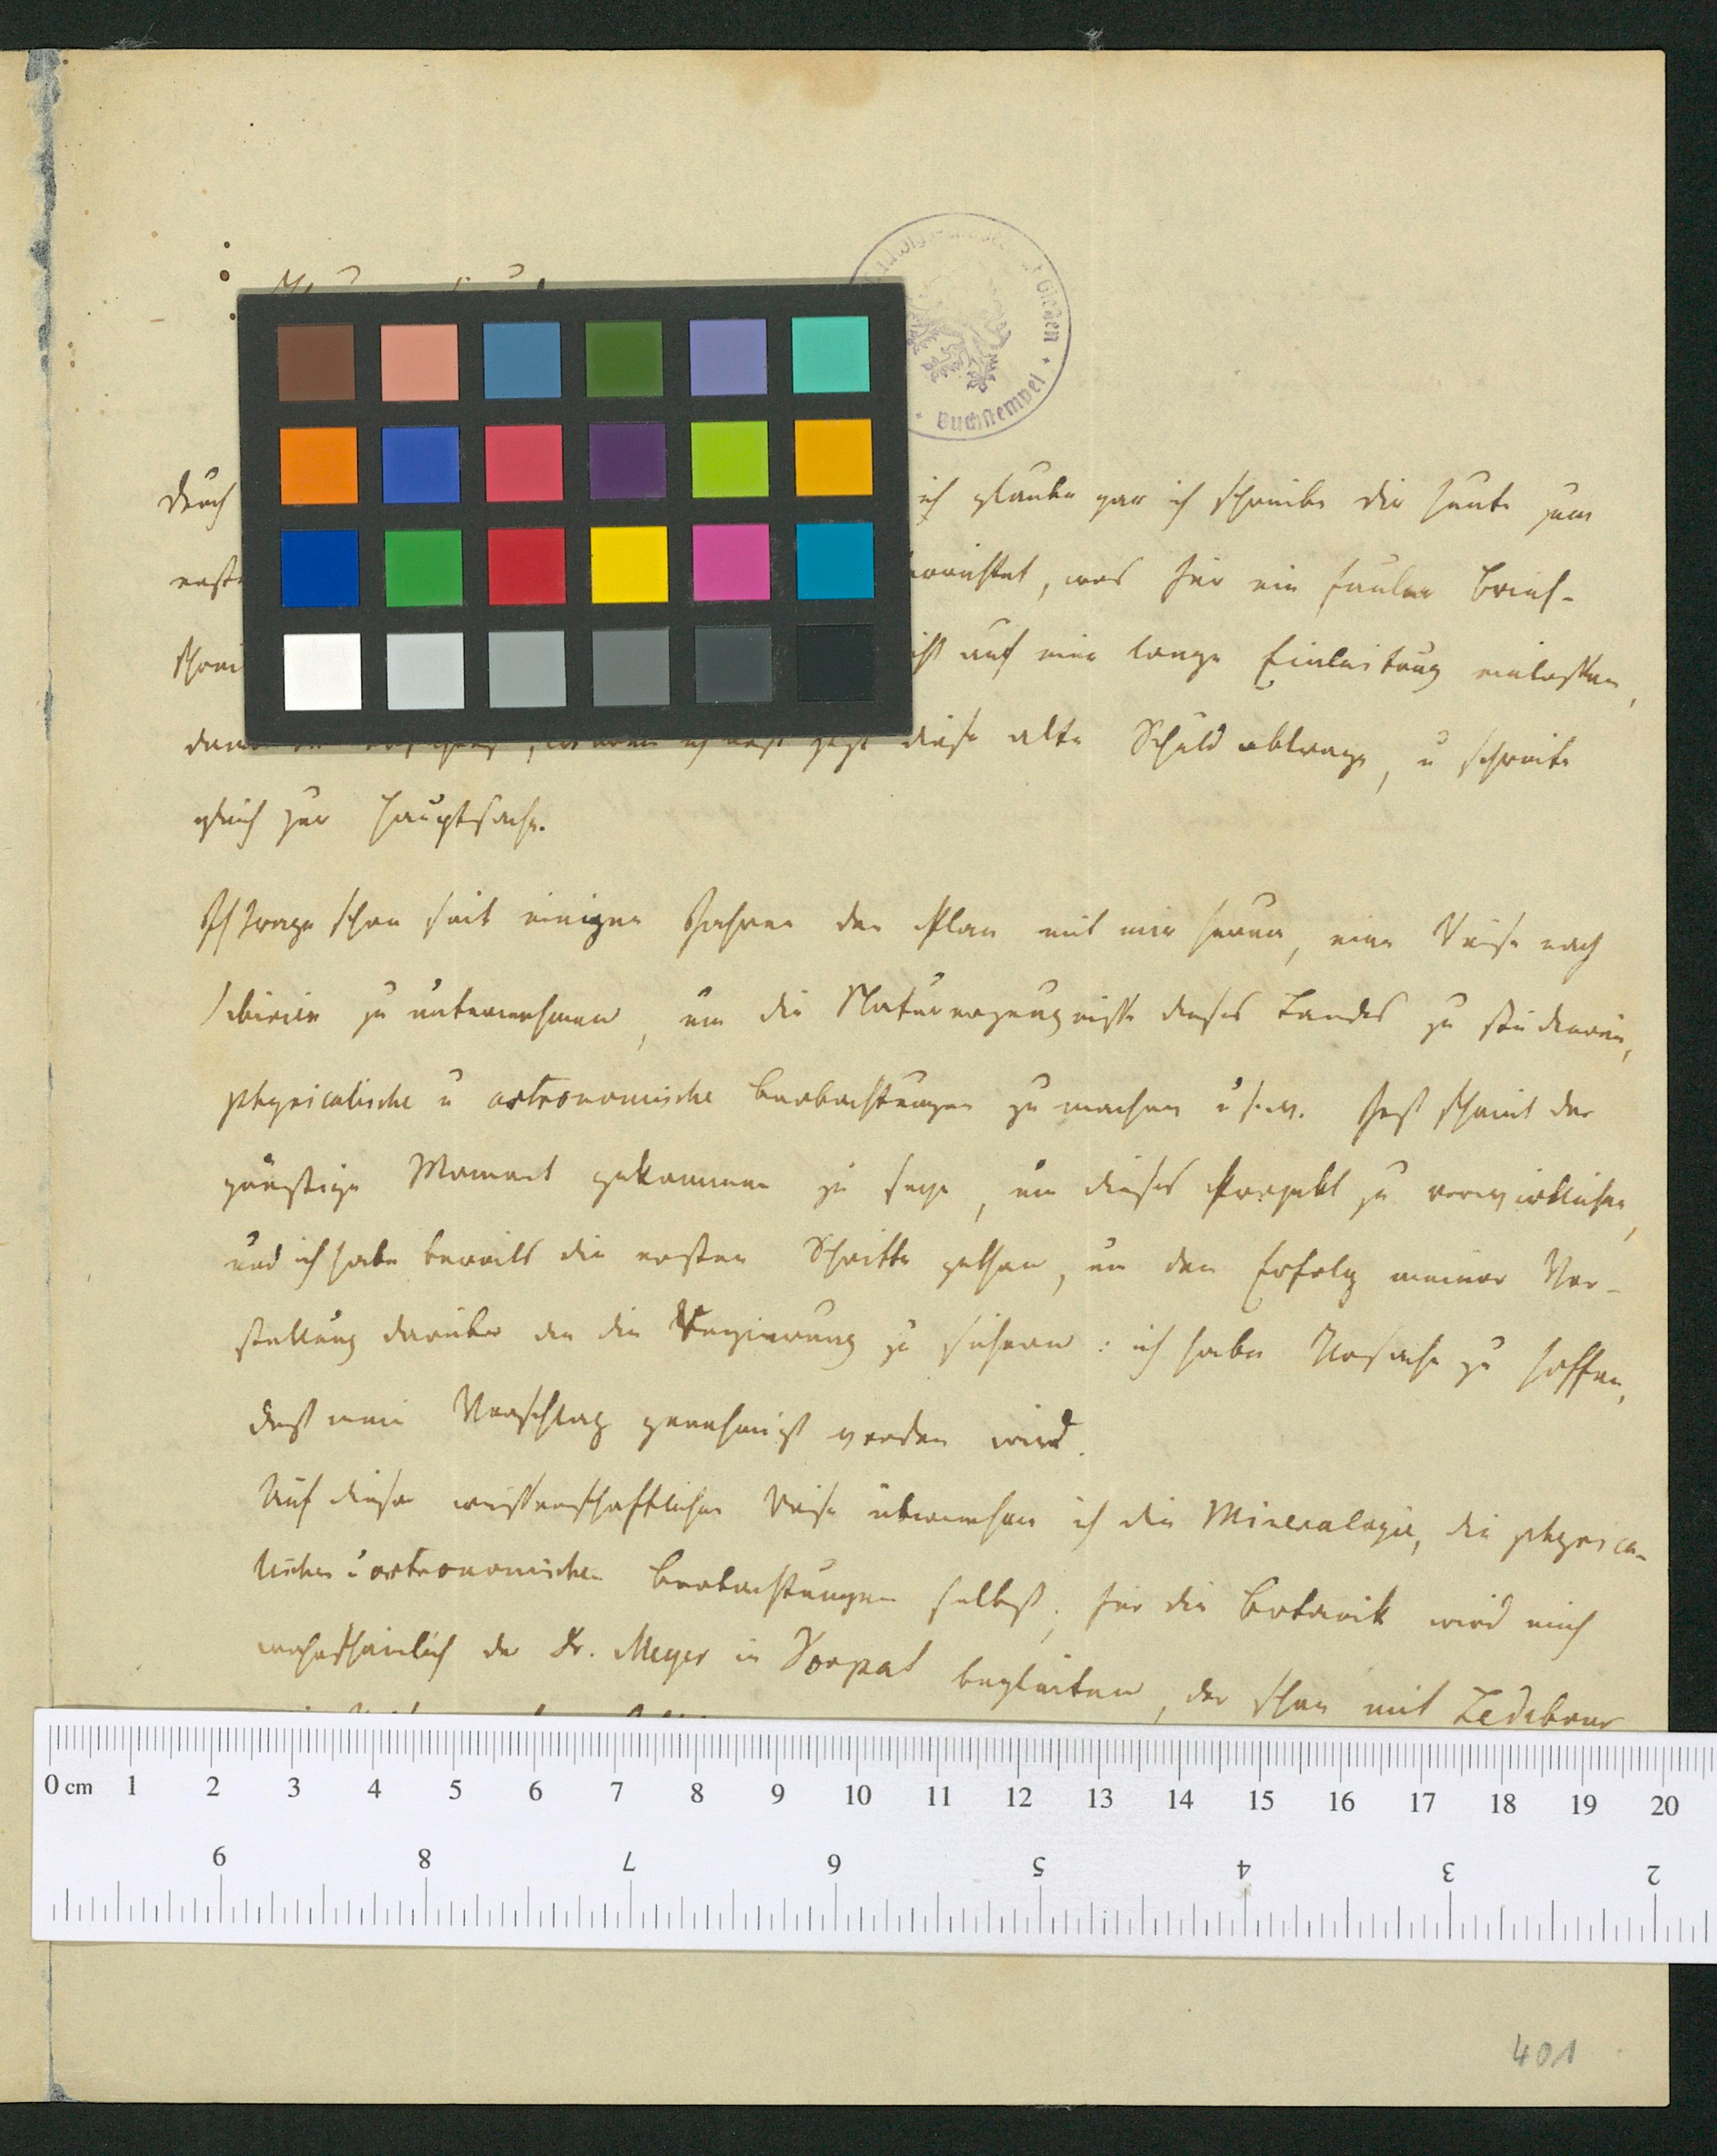 Giessen
Buchstempel
Durch ich glaube gar ich schreibe dir heute zum
erst was für ein fauler Brief-
schrei nicht auf eine lange Einleitung einlassen,
diese alte Schuld abtrage, u schreite
gleich zur Hauptsache.
Ich trage schon seit einigen Jahren den Plan mit mir herum, eine Reise nach
Sibirien zu unternehmen, um die Naturerzeugnisse dieses Landes zu studieren,
physicalische u astronomische Beobachtungen zu machen u s. w. Jetzt scheint der
günstige Moment gekommen zu seyn, um dieses Projekt zu verwirklichen,
und ich habe bereits die ersten Schritte gethan, um den Erfolg meiner Vor-
stellung darüber an die Regierung zu sichern: ich habe Ursache zu hoffen,
daß mein Vorschlag genehmigt werden wird.
Auf dieser wissenschaftlichen Reise übernehme ich die Mineralogie, die physica-
lischen u astronomischen Beobachtungen selbst; für die Botanik wird mich
wahrscheinlich der Dr. Meyer in Dorpat begleiten, der schon mit Ledebour
0 cm 1 2 3 4 5 6 7 8 9 10 11 12 13 14 15 16 17 18 19 20
9 8 7 6 5 4 3 2
401